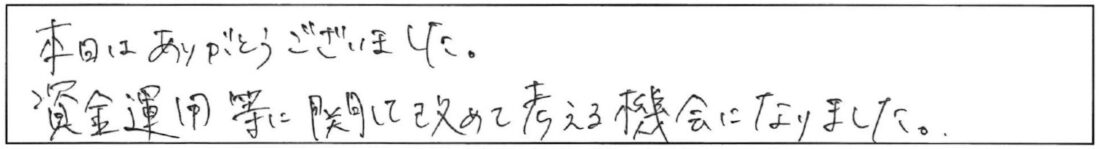 本日はありがとうございました。
資金運用等に関して改めて考える機会になりました。